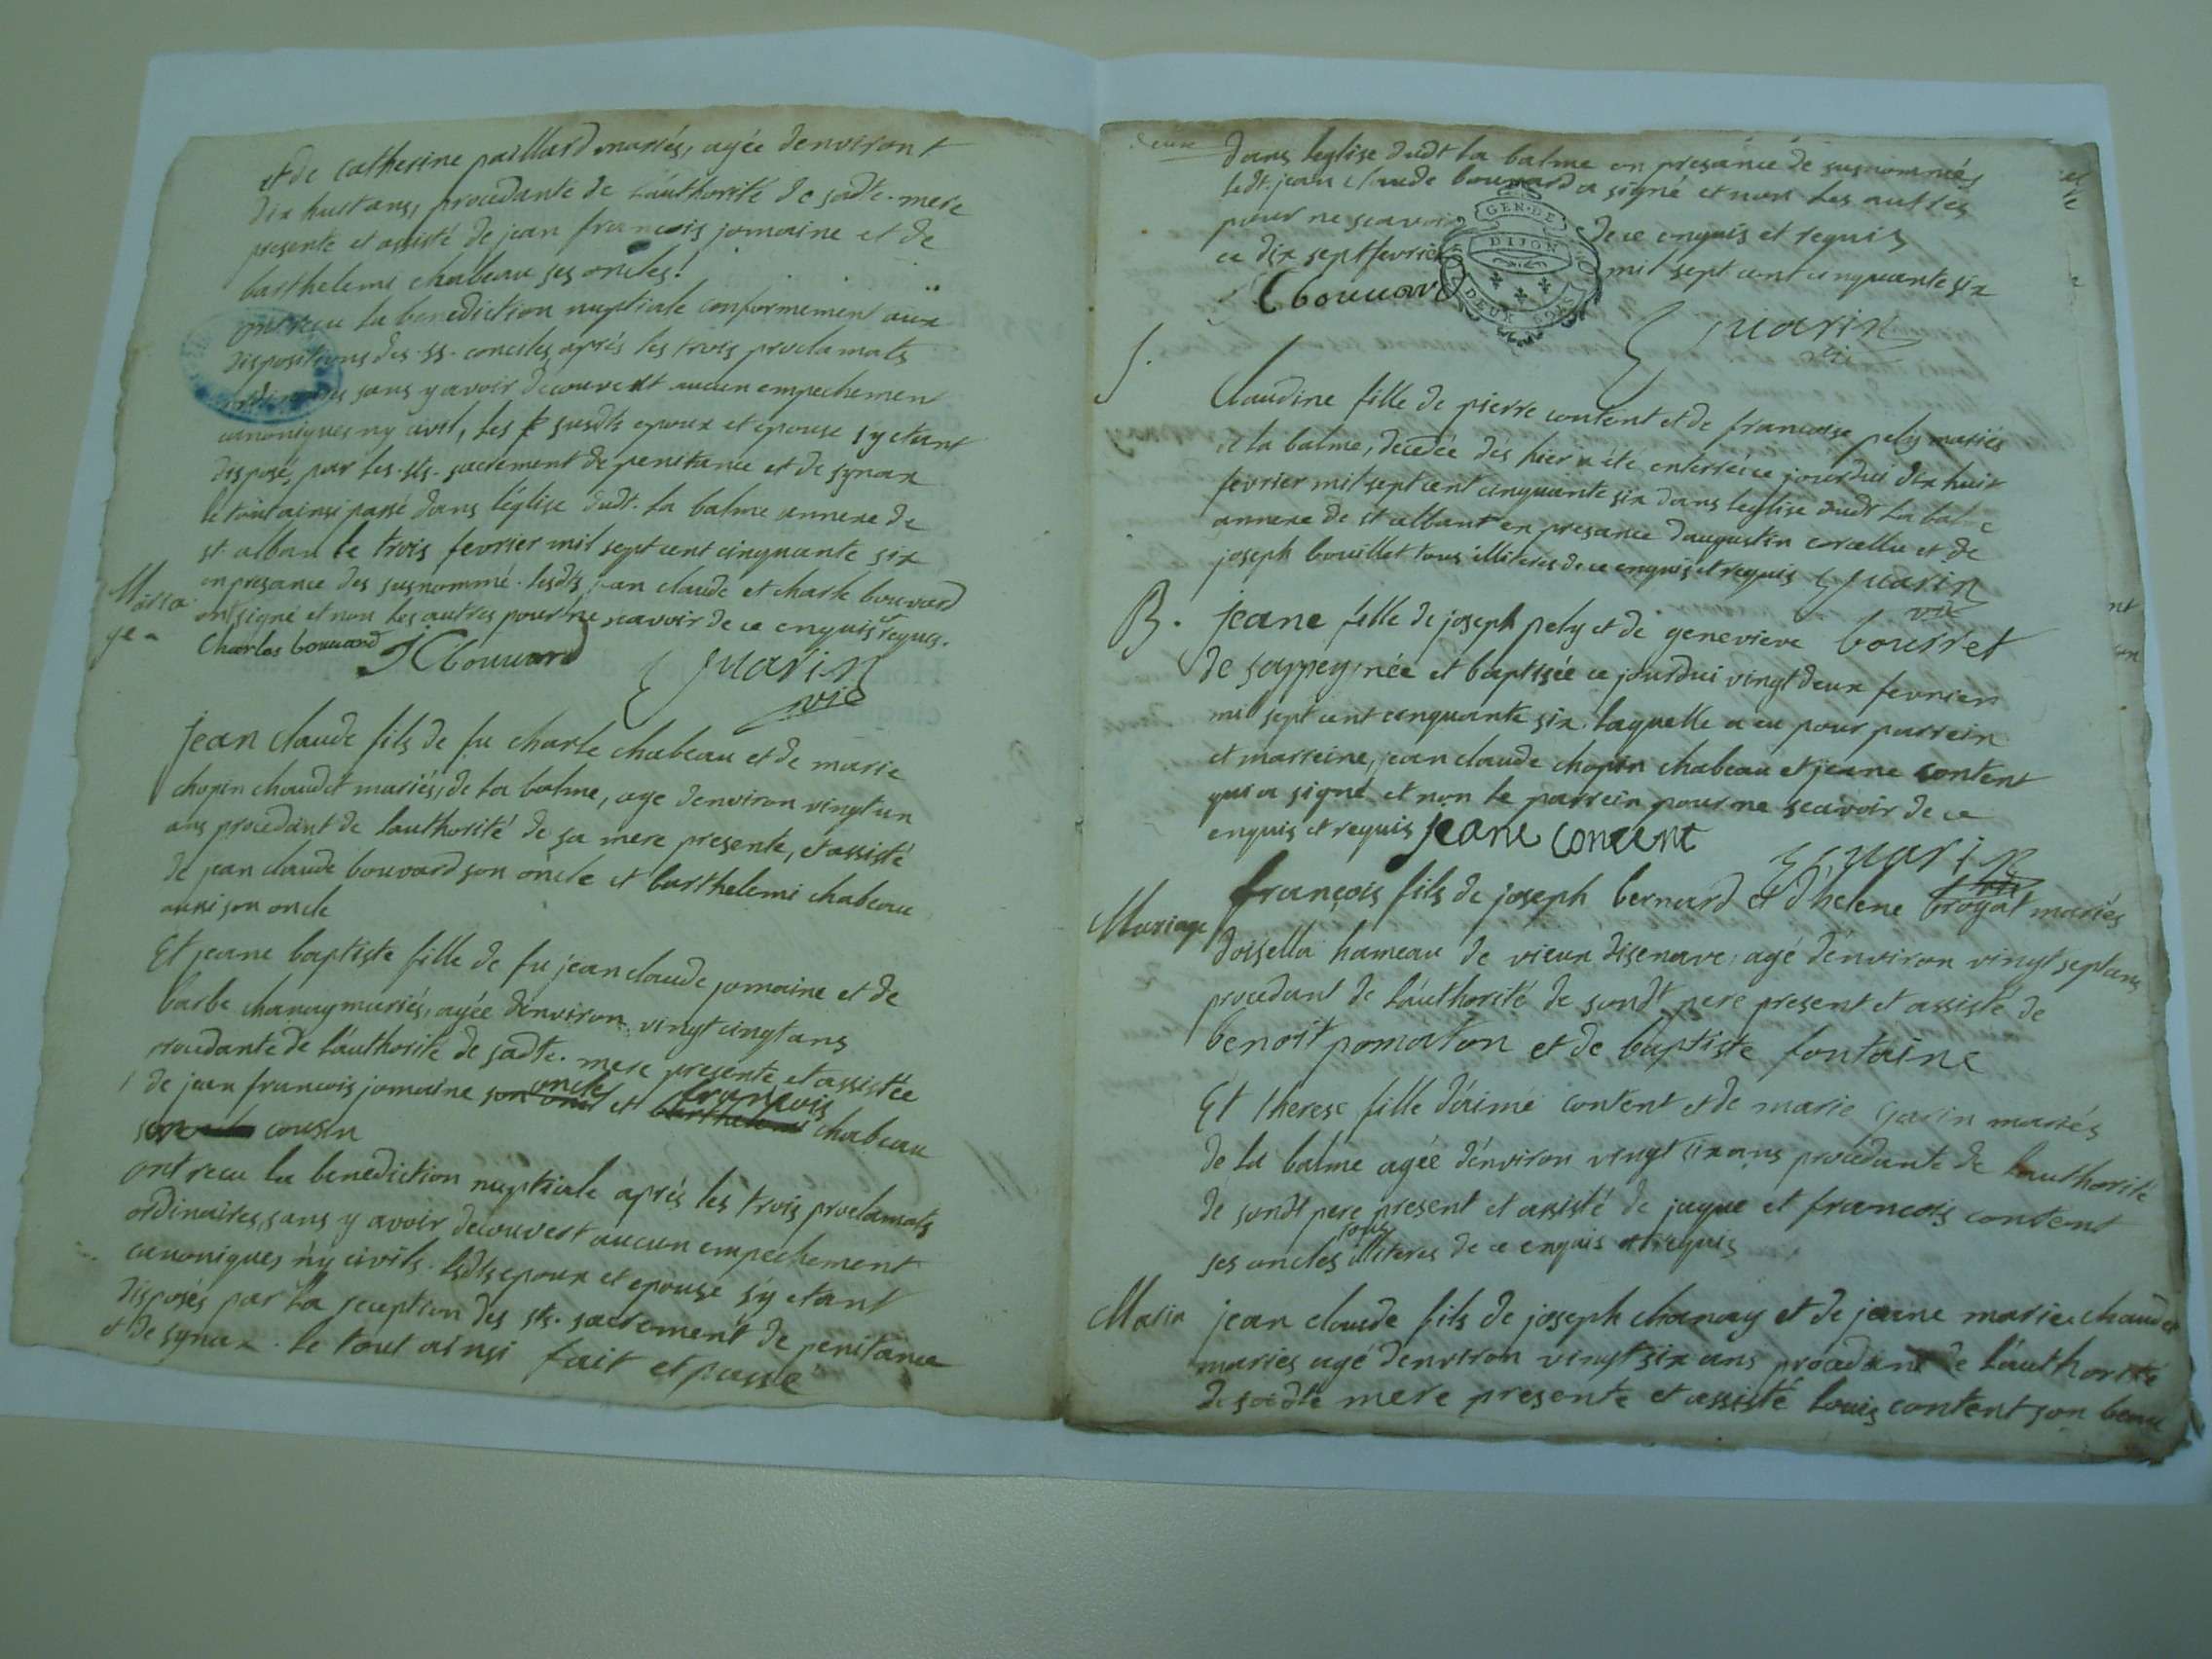 et de catherine paillard mariés, agée denviront
dix huit ans, procedante de lauthorité de sadte. mere
presente et assisté de jean francois jomaine et de
barthelemi chabeau ses oncles.
ont recu la benediction nuptiale conformement aux
dispositions des ss. conciles aprés les trois proclamats
ordinaires sans y avoir decouvert aucun empechemen
canoniques ny civil, les susdts epoux et epouse sy etant
disposé, par les sts. sacrement de penitance et de synax
le tout ainsi passé dans l'église dudt. la balme annexe de
st. alban le trois fevrier mil sept cent cinquante six
en presance des susnommé. lesdts jean claude et charle bouvard
ont signé et non les autres pour ne scavoir de ce enquis et requis.
Charles bouuard JCbouuard Guarin
vic
Maria
ge
jean claude fils de fu charle chabeau et de marie
chopin chaudet mariés, de la balme, age denviron vingt un
ans procedant de lauthorité de sa mere presente, et assisté
de jean claude bouvard son oncle et barthelemi chabeau
aussi son oncle
Et jeane baptiste fille de fu jean claude jomaine et de
barbe chanay mariés, agée denviron vingt cinqt ans
procedante de l'authorité de sadte. mere presente et assistée
de jean francois jomaine son oncle oncle et barthelemi francois chabeau
son cousin
ont recu la benediction nuptiale aprés les trois proclamats
ordinaires, sans y avoir decouvert aucun empechement
canoniques n'y civils. lesdts epoux et epouse s'y etant
disposés par la reception des sts. sacrement de penitance
et de synax. le tout ainsi fait et passé
deux
dans leglise dudt la balme en presance de susnommés
ledt. jean claude bouvard a signé et non les autres
pour ne scavoir de ce enquis et requis
ce dix sept fevrier mil sept cent cinquante six
Cbouuard
GEN. DE
DIJON
DEUX SOLS
Guarin
vic
S.
Claudine fille de pierre content et de francoise pely mariés
de la balme, decedée dés hier a été enterrée ce jourdui dix huit
fevrier mil sept cent cinquante six dans leglise dudt la balme
annexe de st albant en presance daugustin corcellu et de
joseph bouillet tous illiteres de ce enquis et requis Guarin
vic
B. jeane fille de joseph pely et de genevieve bourret
de sappey, née et baptisée ce jourdui vingt deux fevrier
mil sept cent cinquante six. laquelle a eu pour parrein
et marreine, jean claude chopin chabeau et jeane content
qui a signé et non le parrein pour ne scavoir de ce
enquis et requis jeane content
Guarin
vic
Mariage
françois fils de joseph bernard et d'helene broyat mariés
doisella hameau de vieux disenave, agé d'environ vingt sept ans
procedant de l'authorité de sondt pere present et assisté de
benoit pomaton et de baptiste fontaine
Et therese fille d'aimé content et de marie garin mariés
de la balme agée d'environ vingt six ans procedante de lauthorité
de sondt pere present et assisté de jaque et francois content
ses oncles tous illiteres de ce enquis et requis
Maria jean claude fils de joseph chanay et de jeane marie chaudet
mariés agé denviron vingt six ans procedant de l'authorité
de sadte mere presente et assisté louis content son beau